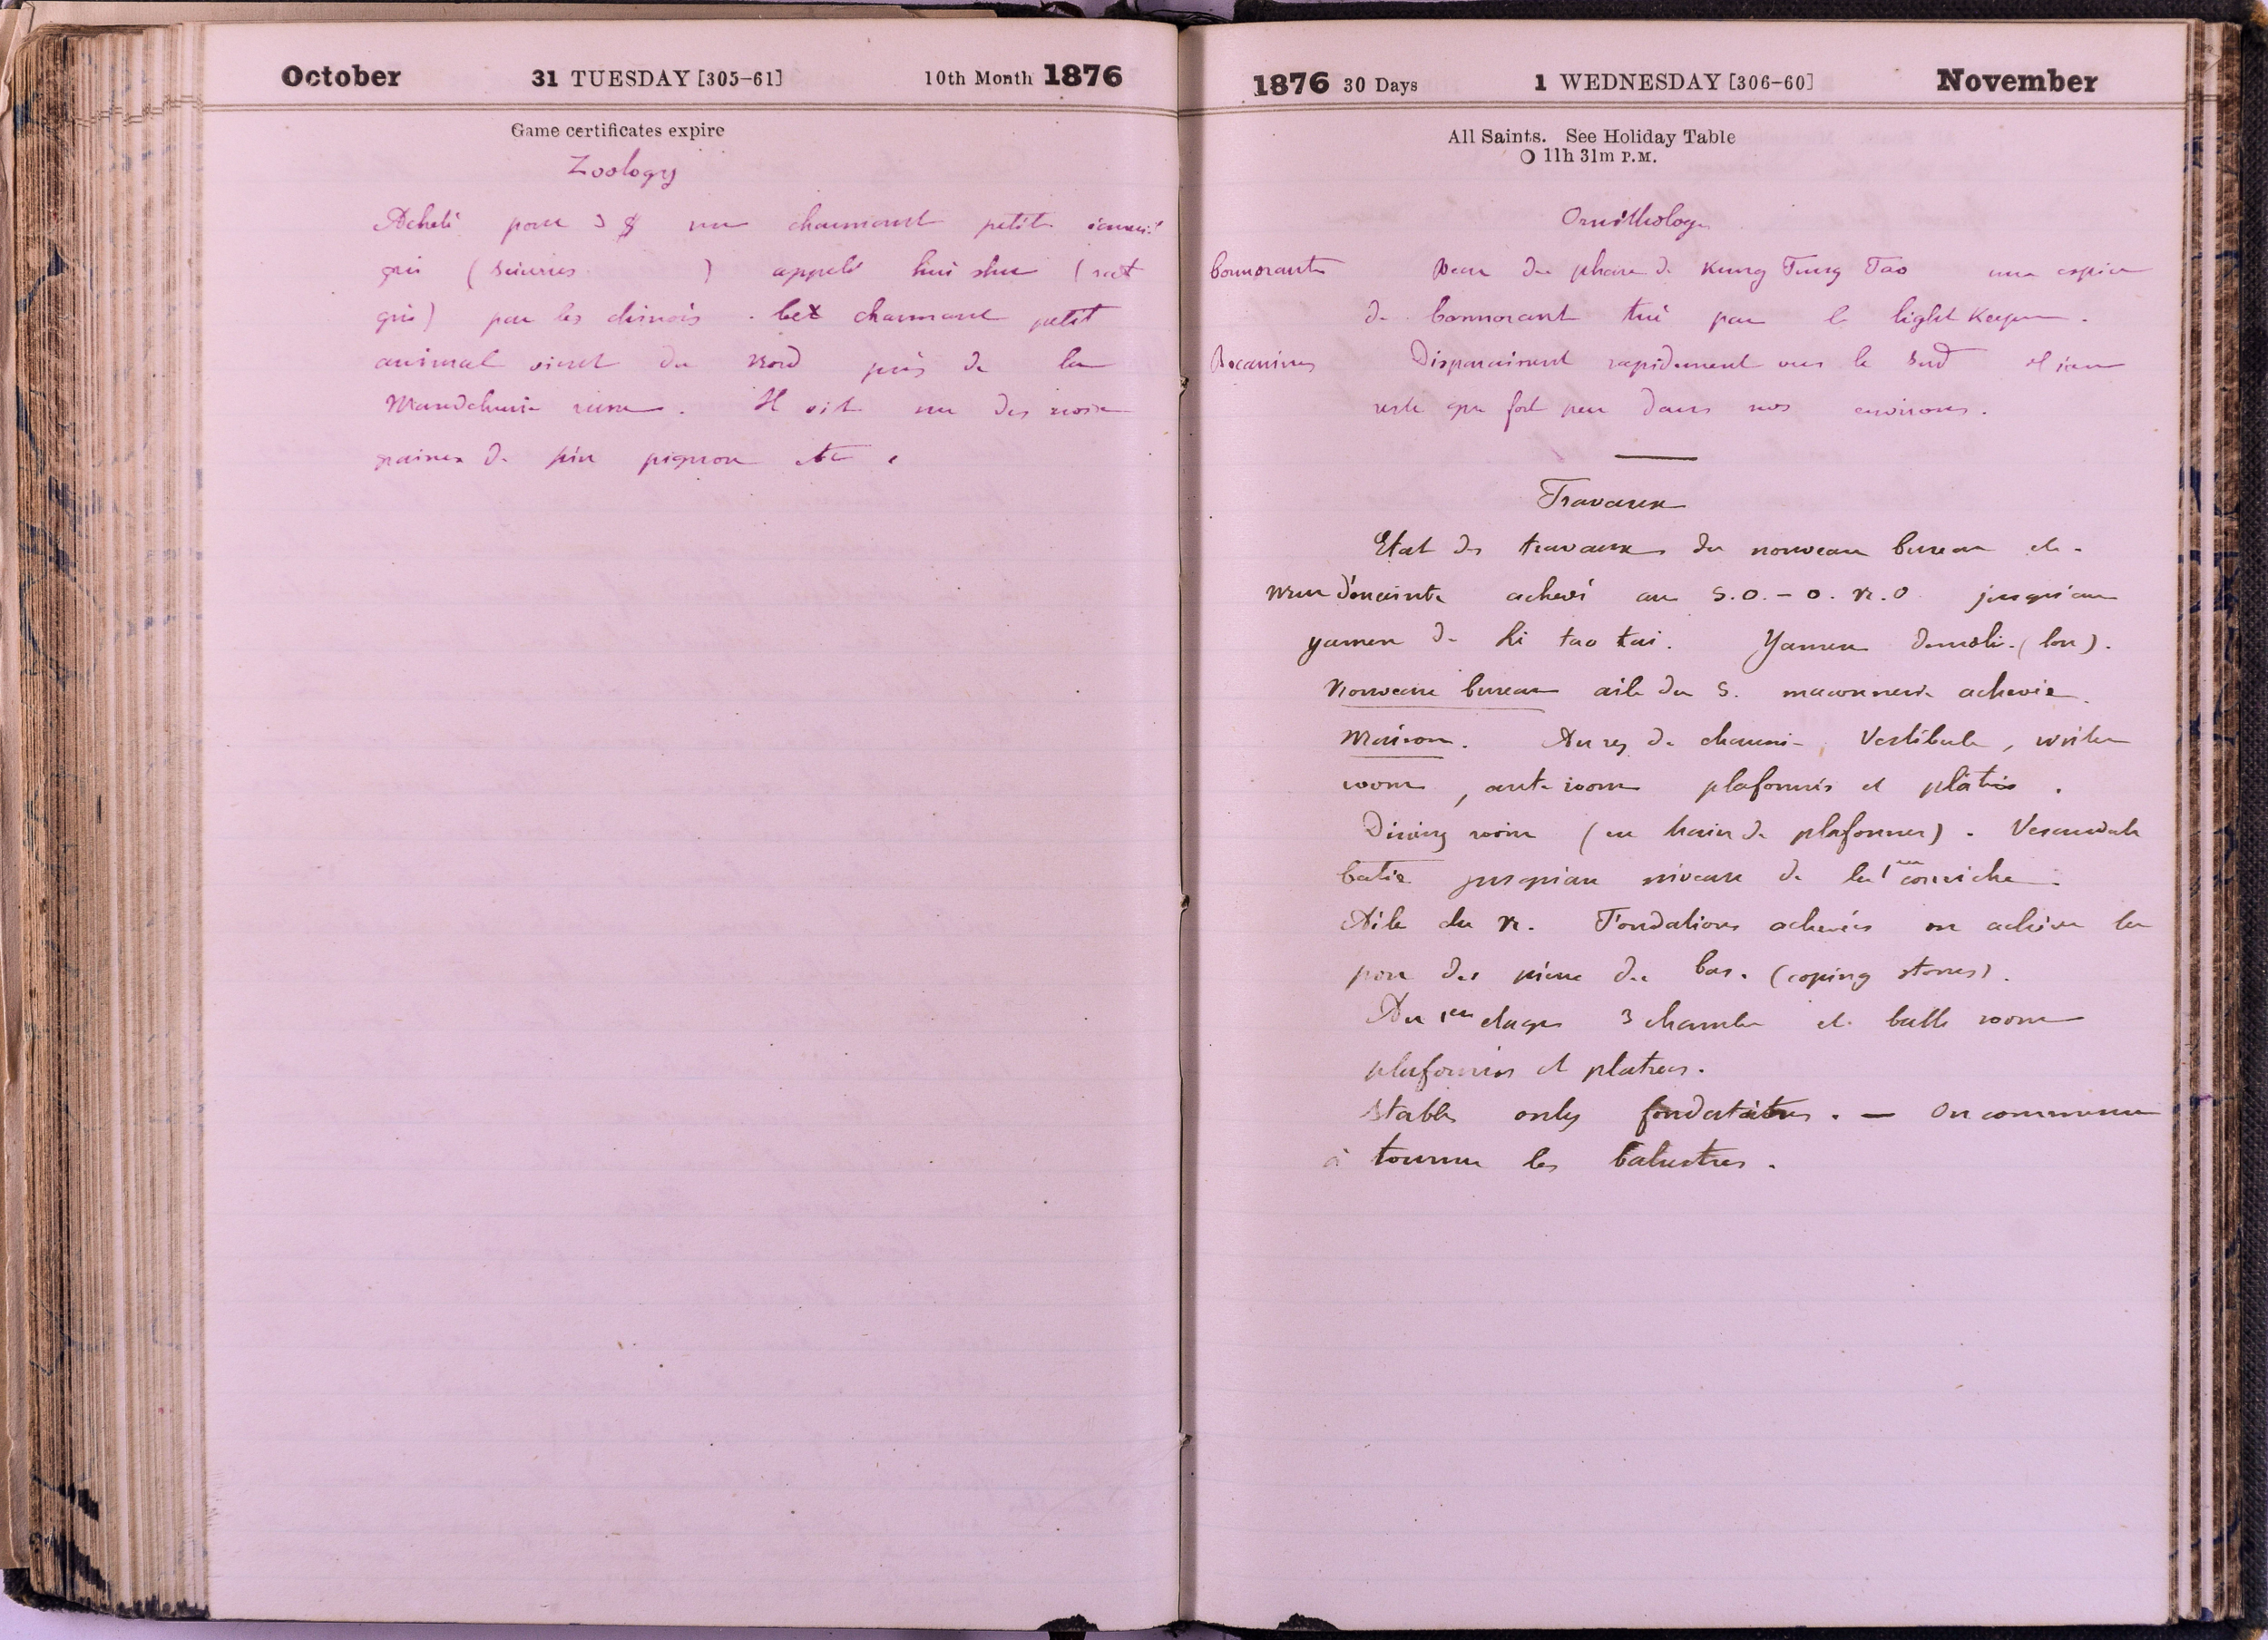 October 31 TUESDAY [305-61] 10th Month 1876
Game certificates expire
Zoology
Acheté pour 3 $ un charmant petit écureuil
gris (Sciurus ) appelé hui shu (rat
gris) par les chinois. Cet charmant petit
animal vient du Nord près de la
Mandchurie russe. Il vit de noix
graines de pin pignon etc.
1876 30 Days 1 WEDNESDAY [306-60] November
All Saints. See Holiday Table
11h 31m P.M.
Ornitholog
Cormorants Recu du phare de Kung Tung Tao une espèce
de Cormorant tué par le light Keeper.
Becassines Disparaissent rapidement vers le Sud et
reste que fort peu dans nos environs.
Travaux
Etat des travaux du nouveau bureau etc.
Mur d'enceinte achevé au S.O. - O. N.O jusqu'au
yamen de Li tao tai. Yamen demoli.
Nouveau bureau aile du S. maconnerie achevée
Maison. Au rez de chaussé Vestibule, writer
room, ante room plafonnés et platrés.
Dining room (en train de plafonner). Verandah
batie jusqu'au niveau de la 1ere corniche.
Aile du N. Fondations achevées on achève la
pose des pierres du bas. (coping stones).
Au 1er etage 3 chambres et bath room
plafonnés et platrées.
Stable only fondations. — On commence
à tourner les balustres.